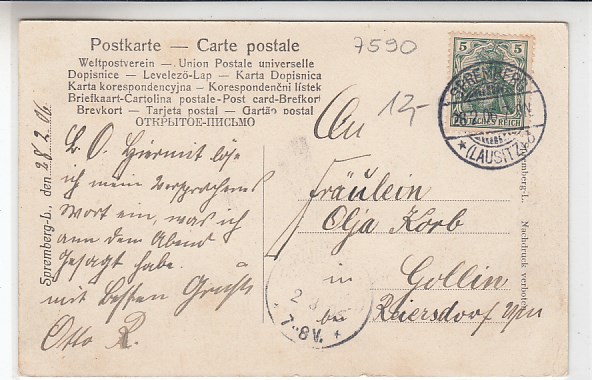 Postkarte — Carte postale
Weltpostverein — Union Postale universelle
Dopisnice — Levelező-Lap — Karta Dopisnica
Karta korespondencyjna — Korespondenční lístek
Briefkaart-Cartolina postale-Post card-Brefkort
Brevkort — Tarjeta postal — Gartão postal
ОТКРЫТОЕ-ПИСЬМО
7590
12,-
5 5
SPREMBERG
28.2.06
* (LAUSITZ) b
Spremberg-L., den 28 2 06.
L. O. Hiermit löse
ich mein Versprochenes
Wort ein, was ich
am dem Abend
gesagt habe.
mit besten Gruß
Otto R.
An
Fräulein
Olja Korb
in
Gollin
bei
Reiersdorf
2
7-8V. +
Spremberg-L. Nachdruck verboten